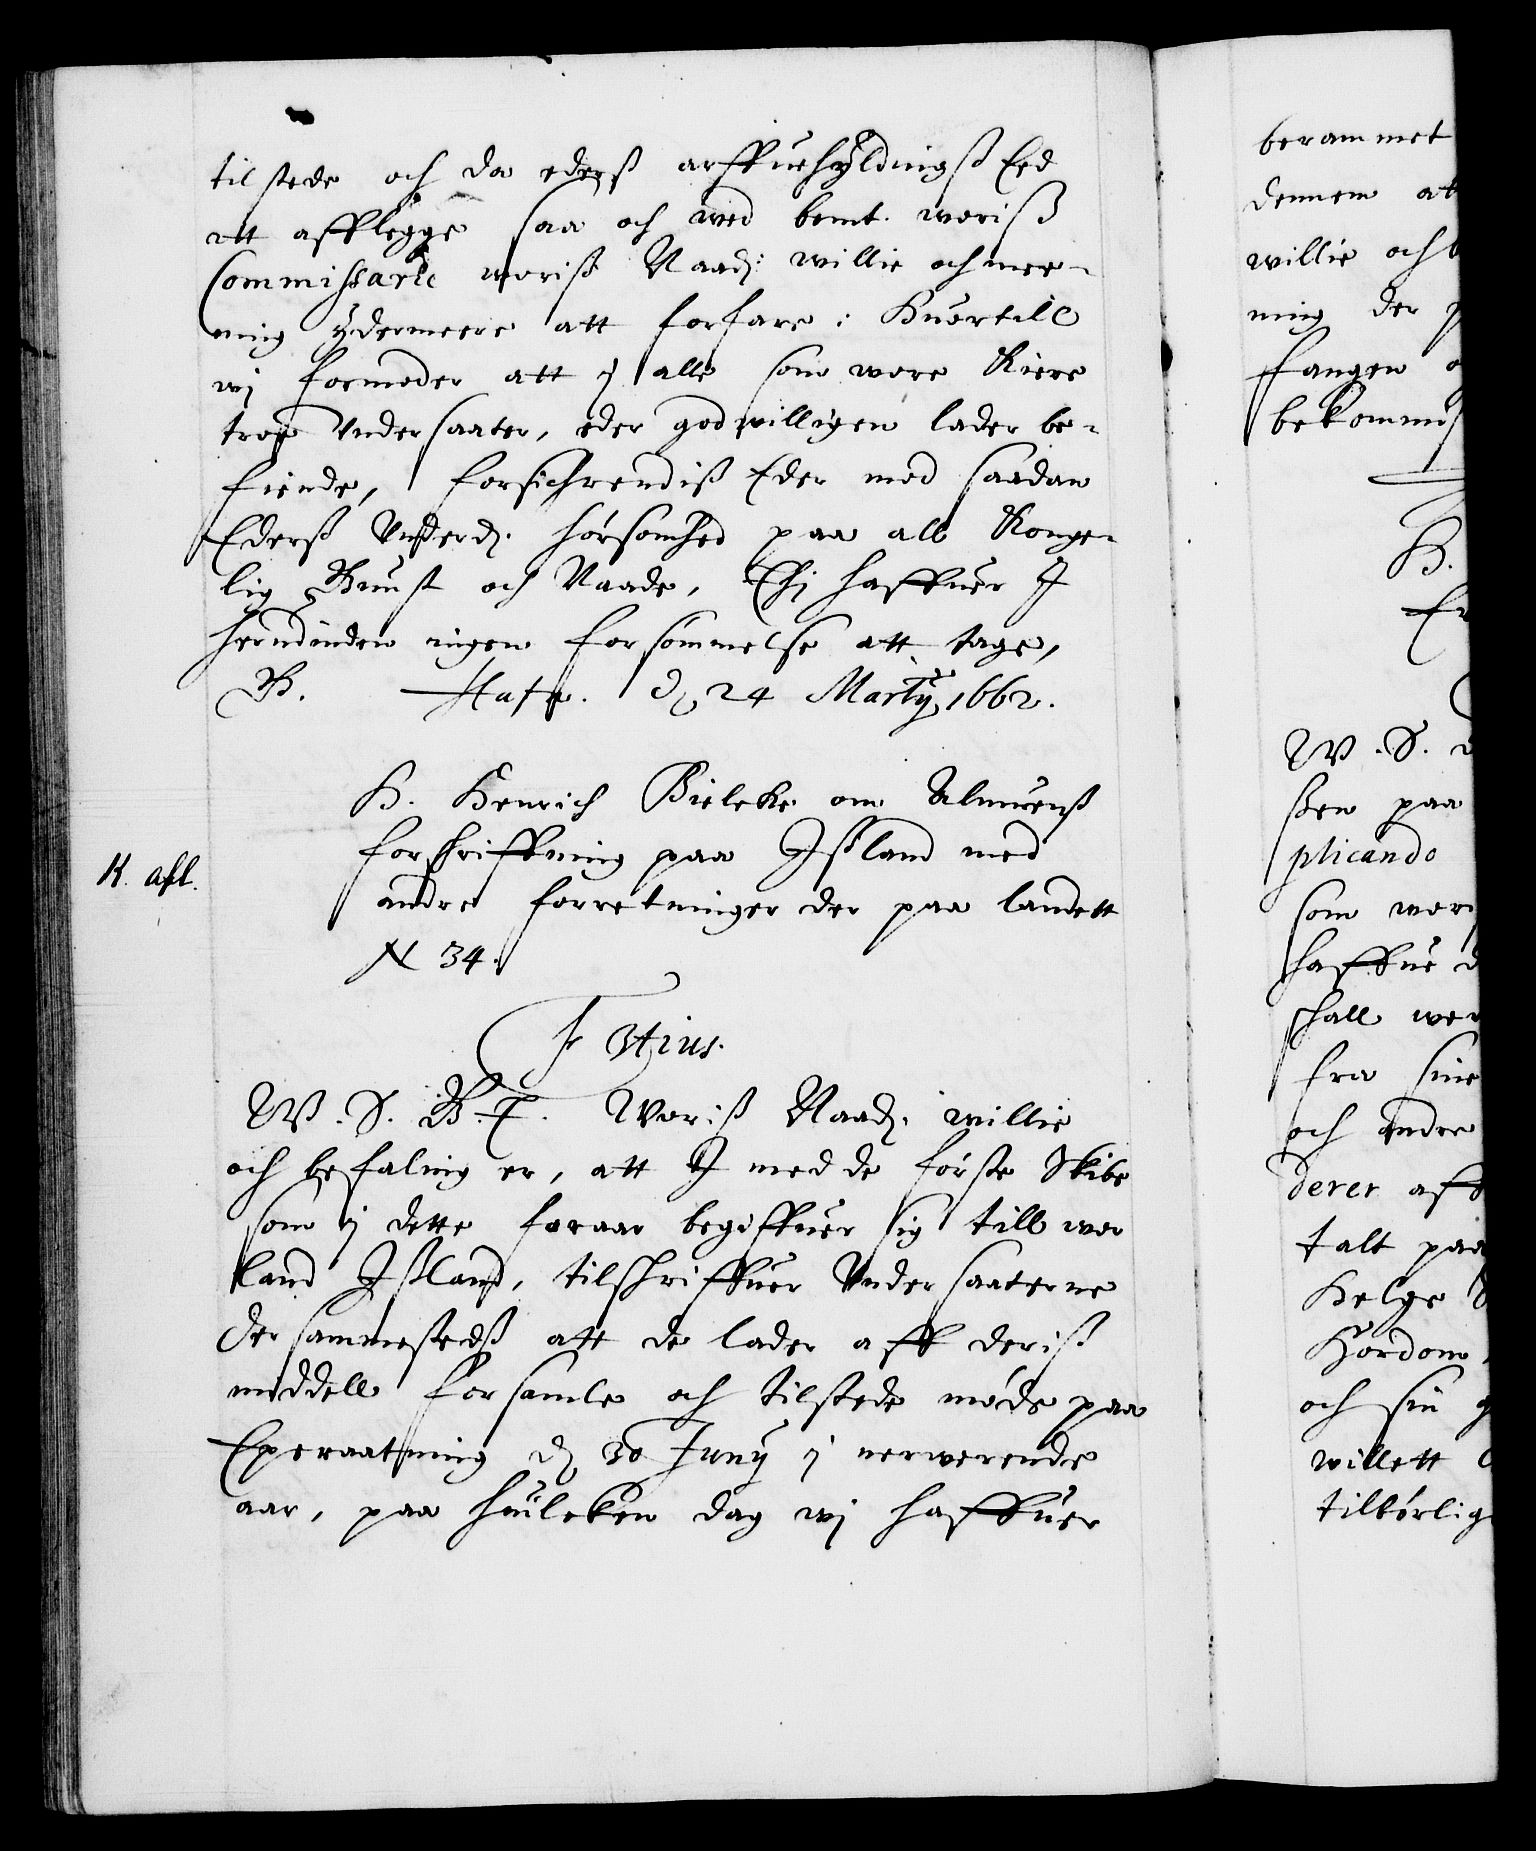 tilstede och da ederß arffuehyldingß Eed
att afflegge saa och med bemt. woriß
Commissarie woriß Naadß: willie och mee-
ning ydermeere att forfare: Huortill
wj formoder att j alle som wore Kiere
troe Vndersaater, eder godwilligen lader be-
finde, forsichrendiß Eder mod saadan
Ederß Vnderd. hørsomhed paa all Konge-
lig Gunst och Naade, Thj haffuer J
herudinden ingen forsømmelse att tage,
B. Hafn. d. 24 Martij 1662.
H. Henrich Bielcke om Almuenß
forschriffning paa Jßland med
andre forretninger der paa landett
N 34.
K. afl.
F 3tius.
W. S. G. T. Woriß Naadß. willie
och befaling er, att J med de første Skibe
som j dette foraar begiffuer sig till wor
land Jßland, tilschriffuer Vndersaaterne
der sammestedß att de lader aff deriß
middell forsamle och tilstede møde paa
Øxeraatning d. 30 Junij j nerwerende
aar, paa huilcken dag wj haffuer
berammet
dennem att
willie och
ning der
fangen
bekommis
H.
W. S.
ßen paa
plicando
som wor
haffue
schall wer
fra sine
och andre
derer aff
talt paa
Helge
Hordom
och sin
willett
tilbørlig